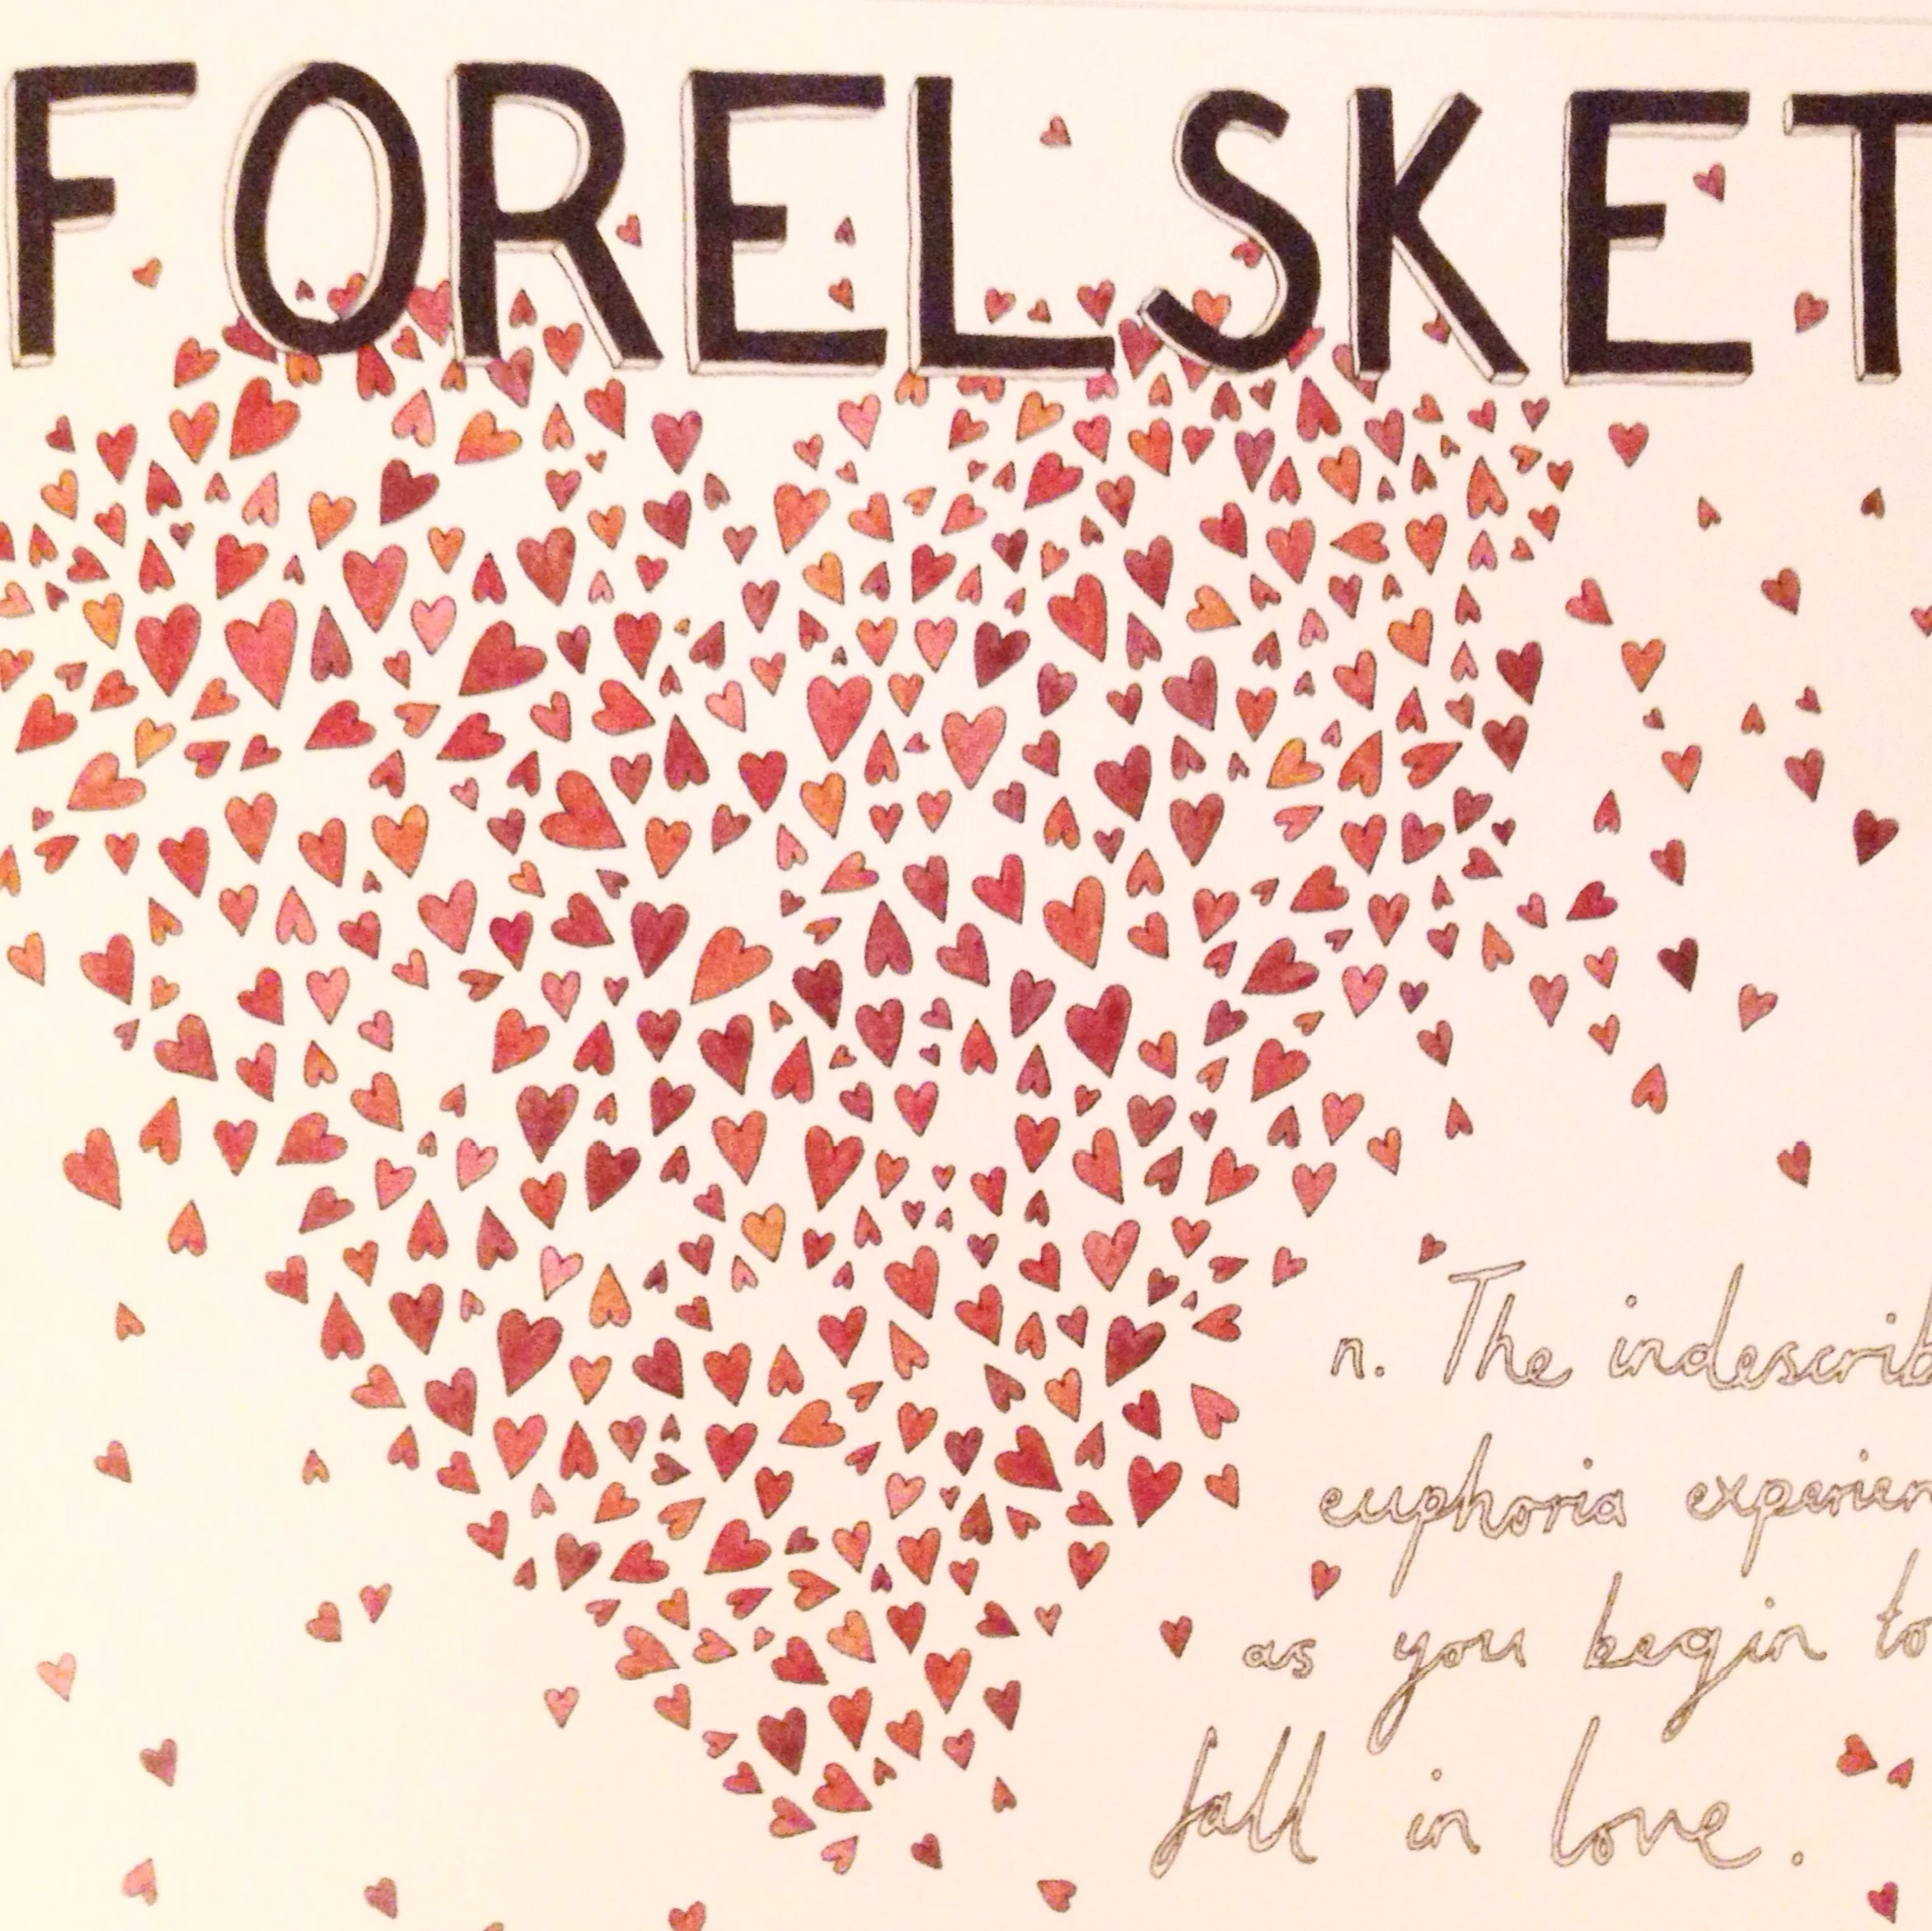 FORELSKET
n. The indescrib
euphoria experien
as you begin to
fall in love.